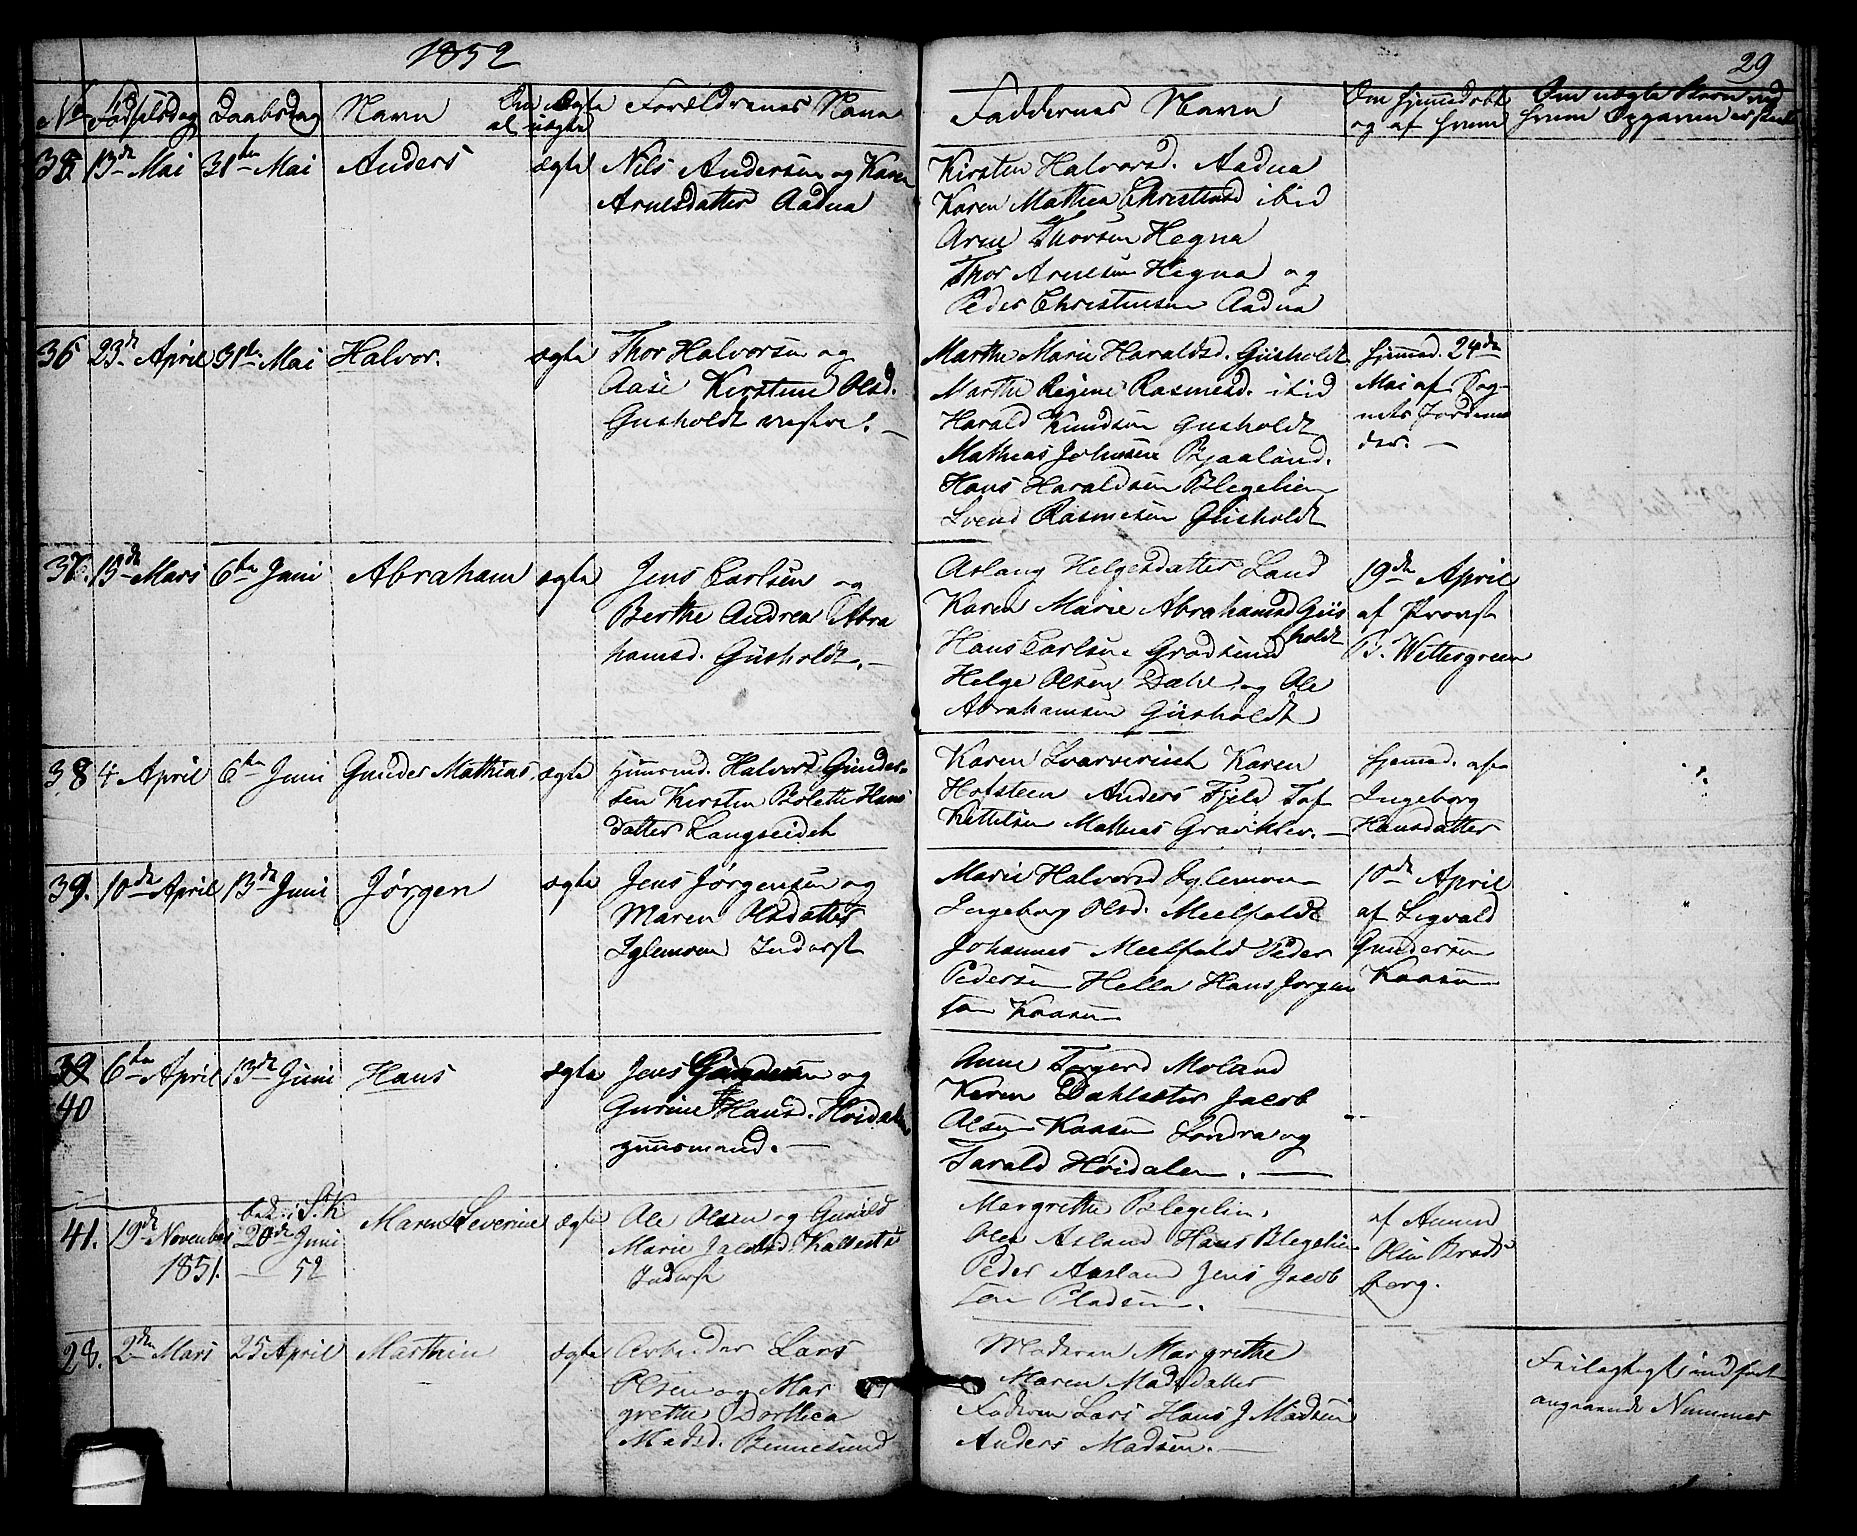 1852
29
No Fødselsdag Daabsdag Navn Om Ægte el uægte Forældrenes Navn Faddernes Navn Om hjemmedøbt og af hvem Om uægte Børn ved hvem Opgaven er skeet
35 13de Mai 31te Mai Anders ægte Nils Andersen og Karen
Arnesdatter Aadna
Kirsten Halvorsd. Aadna
Karen Mathea Christensd ibid
Arne Thorsen Hegna
Thor Arnesen Hegna og
Peder Christensen Aadna
36 23de April 31te Mai Halvor. ægte Thor Halvorsen og
Aase Kirstine Olsd.
Gusholdt vestre. —
Marthe Marie Haraldsd. Gusholdt
Marthe Regine Rasmusd. ibid
Harald Knudsen Gusholdt
Mathias Johnsen Bjaaland.
Hans Haraldsen Blegelien
Svend Rasmusen Gusholdt
hjemmed. 24de
Mai af Sog-
nets Jordemo
der. —
37. 13de Mars 6te Juni Abraham ægte Jens Carlsen og
Berthe Andrea Abra
hamsd. Gusholdt. —
Aslaug Helgesdatter Lund
Karen Marie Abrahamsd Gus
holdt
Hans Carlsen Gradsund
Helge Olsen Dale og Ole
Abrahamsen Gusholdt
19de April
af Provst
B. Wettergreen
38 4 April 6te Juni Gunder Mathias ægte Halvor Gunder-
sen Kirsten Bolette Hans
datter Langseideh
Karen Karen
Hofsteen Anders Fjeld
Kittilsen Mathias Gravklev. —
hjemmed. af
Ingeborg
Hansdatter
39. 10de April 13de Juni Jørgen ægte Jens Jørgensen og
Maren Olsdatter
Iglemoen Inderst
Marie Halvorsd Iglemoen
Ingeborg Olsd. Meelfald
Johannes Meelfald Peder
Pedersen Hella Hans Jørgen
sen Kaasen
10de April
af Sigvald
Gundersen
Kaasen
39 6te April 13de Juni Hans ægte Jens og
40
Gurine Hansd. Høidalen
gaardmand. —
Anne Torgerd Moland
Karen Dahlsæter Jacob
Olsen Kaasen Sondra og
Tarald Høidalen. —
41. 19de November 1851. 20de Juni 52 Maren Severine ægte Ole Olsen og Gunild
Marie Jacobsd. Kalvesta
Inderst
Margrethe Blegelin.
Olea Asland Hans Blegelien
Peder Aasland Jens Jacob
sen Pladsen.
af Amund
Olsen Brads
berg.
28. 2den Mars 25 April Marthin ægte Arbeider Lars
Olsen og Mar
grethe Dorthea
Madsd. Bennesund
Moderen Margrethe
Maren Madsdatter
Faderen Lars Hans J Madsen
Anders Madsen. —
Feilagtigt indført
angaaende Nummer